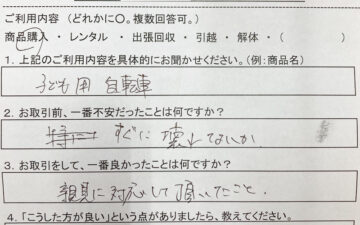 ご利用内容(どれかに〇。複数回答可。)
商品購入・レンタル・出張回収・引越・解体・(
1. 上記のご利用内容を具体的にお聞かせください。(例:商品名)
子ども用 自転車
2. お取引前、一番不安だったことは何ですか?
特に すぐに 壊れてないか
3. お取引をして、一番良かったことは何ですか?
親身に対応して頂いたこと。
4. 「こうした方が良い」という点がありましたら、教えてください。